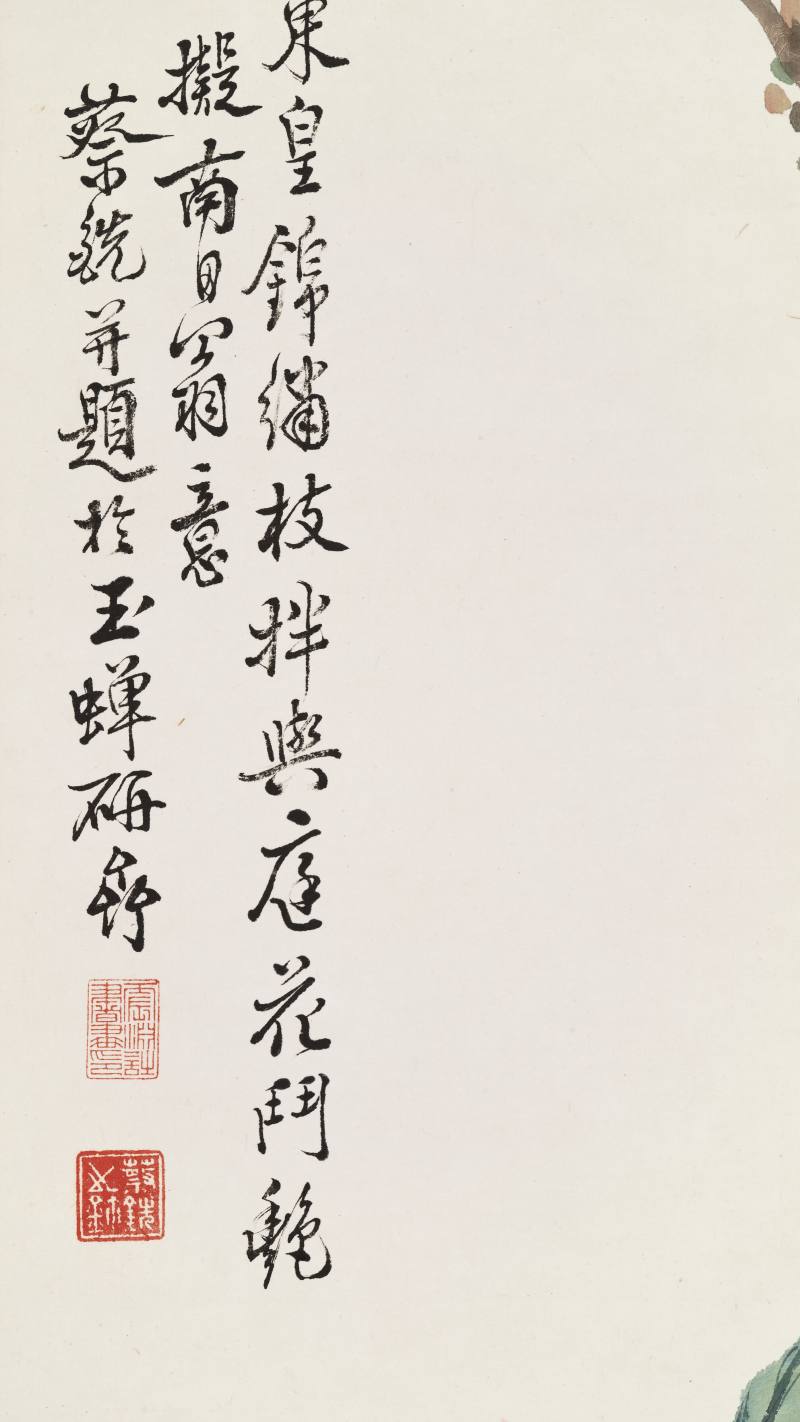 東皇錦繡枝拌與庭花鬥艷
擬南田翁意
蔡銑并題於玉蟬研齋
蔡銑